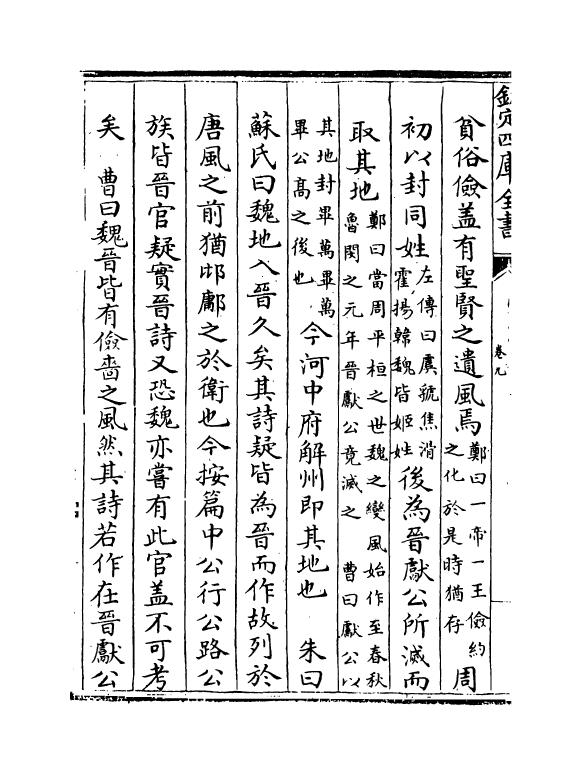 欽定四庫全書
卷九
貧俗儉盖有聖賢之遺風焉鄭曰一帝一王儉約之化於是時猶存周
初以封同姓左傳曰虞虢焦滑霍揚韓魏皆姬姓後為晉獻公所滅而
取其地鄭曰當周平桓之世魏之變風始作至春秋魯閔之元年晉獻公竟滅之 曹曰獻公以
其地封畢萬畢萬畢公髙之後也今河中府解州即其地也 朱曰
蘇氏曰魏地入晉久矣其詩疑皆為晉而作故列於
唐風之前猶邶鄘之於衛也今按篇中公行公路公
族皆晉官疑實晉詩又恐魏亦嘗有此官盖不可考
矣 曹曰魏晉皆有儉嗇之風然其詩若作在晉獻公